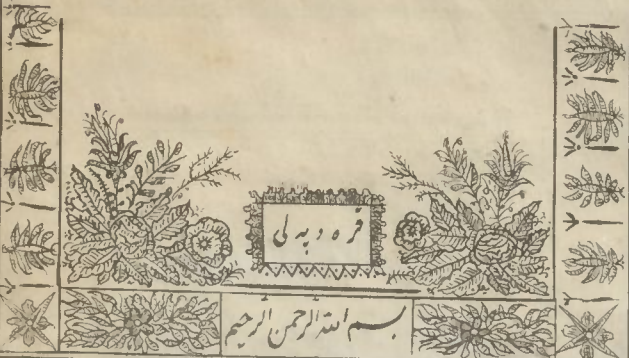 قره دپه لی
بسم الله الرحمن الرحيم